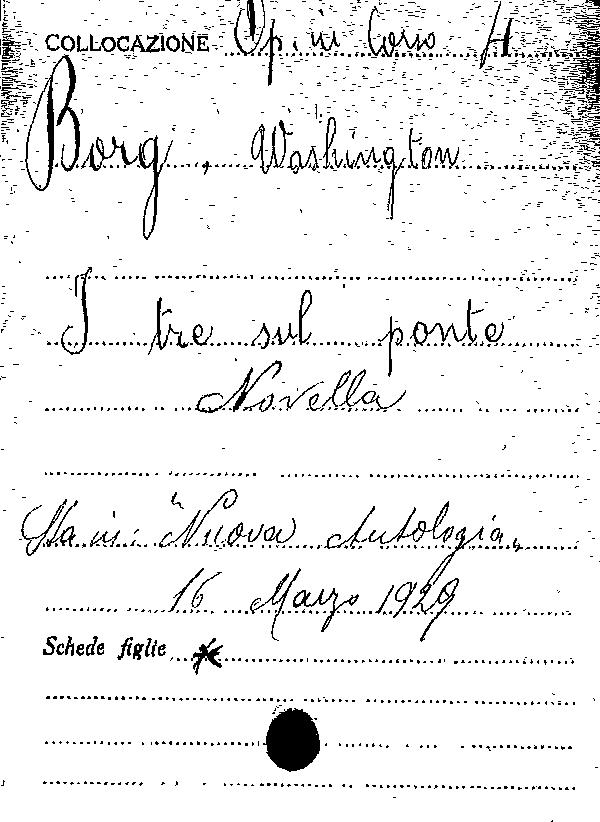 COLLOCAZIONE Op. in Corso H
Borg, Washington
I tre sul ponte
Novella
Sta in: "Nuova Antologia"
16 Marzo 1929
Schede figlie